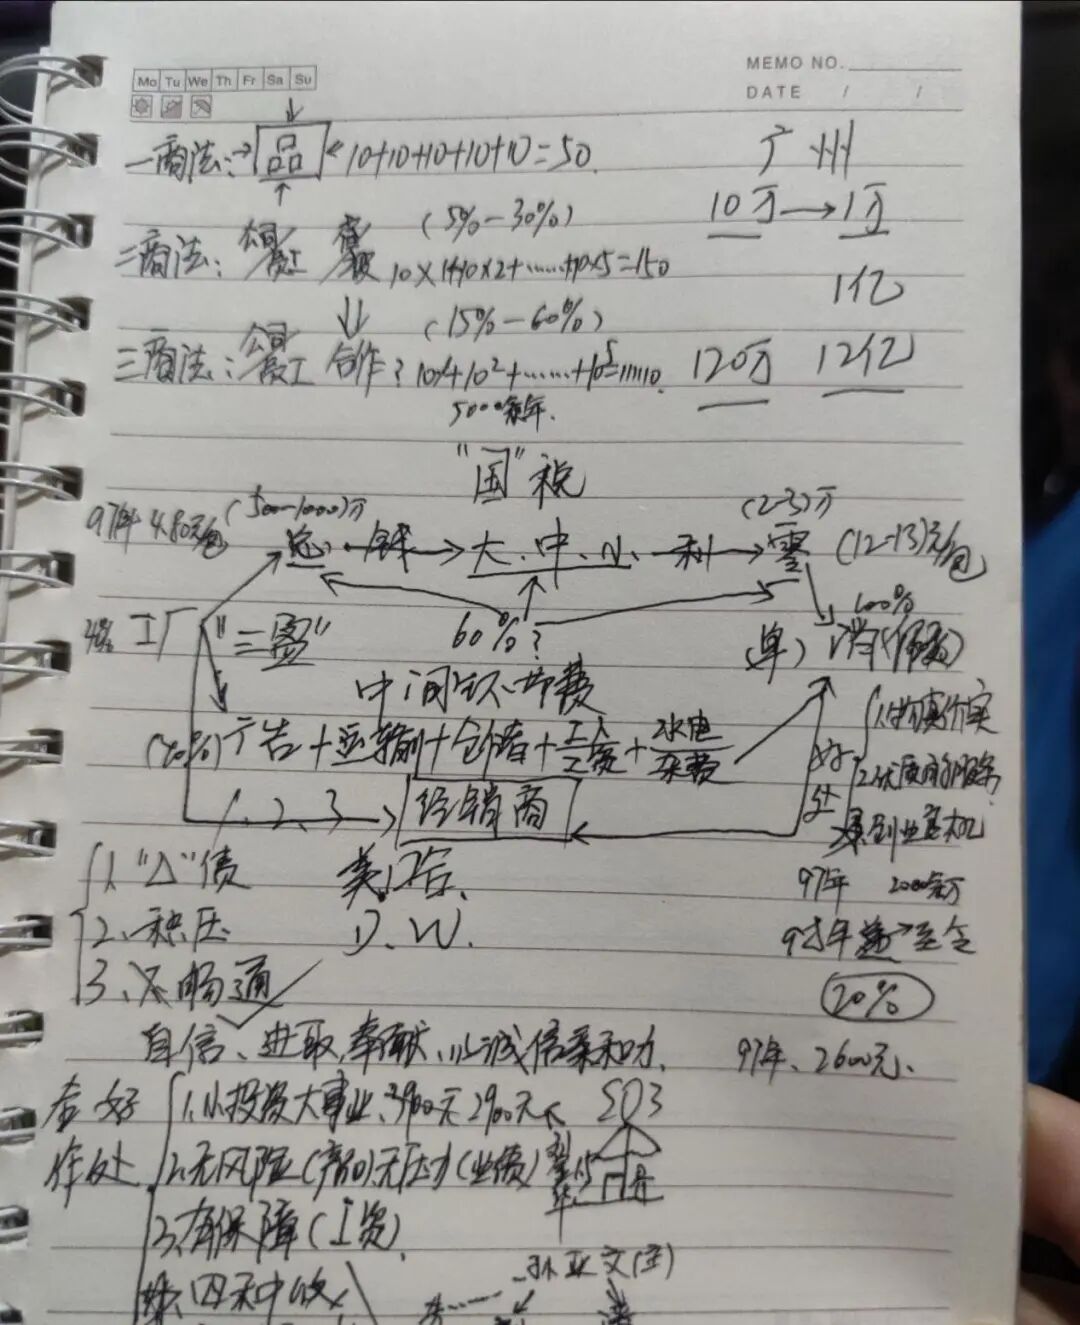 Mo Tu We Th Fr Sa Su
MEMO NO.
DATE / /
一商法：→品← 10+10+10+10+10=50
广州
10万→1万
(5%-30%)
二商法：公司 员工 10×1+10×2+……+10×5=150
1亿
(15%-60%)
三商法：公司 员工 合作？10+10²+……+10⁵=111110
120万 12亿
5000余年.
"国"税
97年 4.80元/包 (500-1000)万 (2-3)万
总 钱→大.中.小 利→零 (12-13)元/包
工厂 "三" 60%? (单) 消 100%
中间环节费
(40%) 广告+运输+仓储+工人工资+水电杂费
1.物真价实
好处
2.优质的服务
1、2、3→经销商
创业
1."Δ"债
美.
97年 2000余万
2、积压
D.W.
98年 →至今
3、不畅通
20%
自信、进取、奉献、以诚信亲和力.
97年、2600元.
合作 好处
1.小投资大事业、3900元 2900元
2.无风险(产品)无压力(业债)
3.有保障(工资)
四和中收